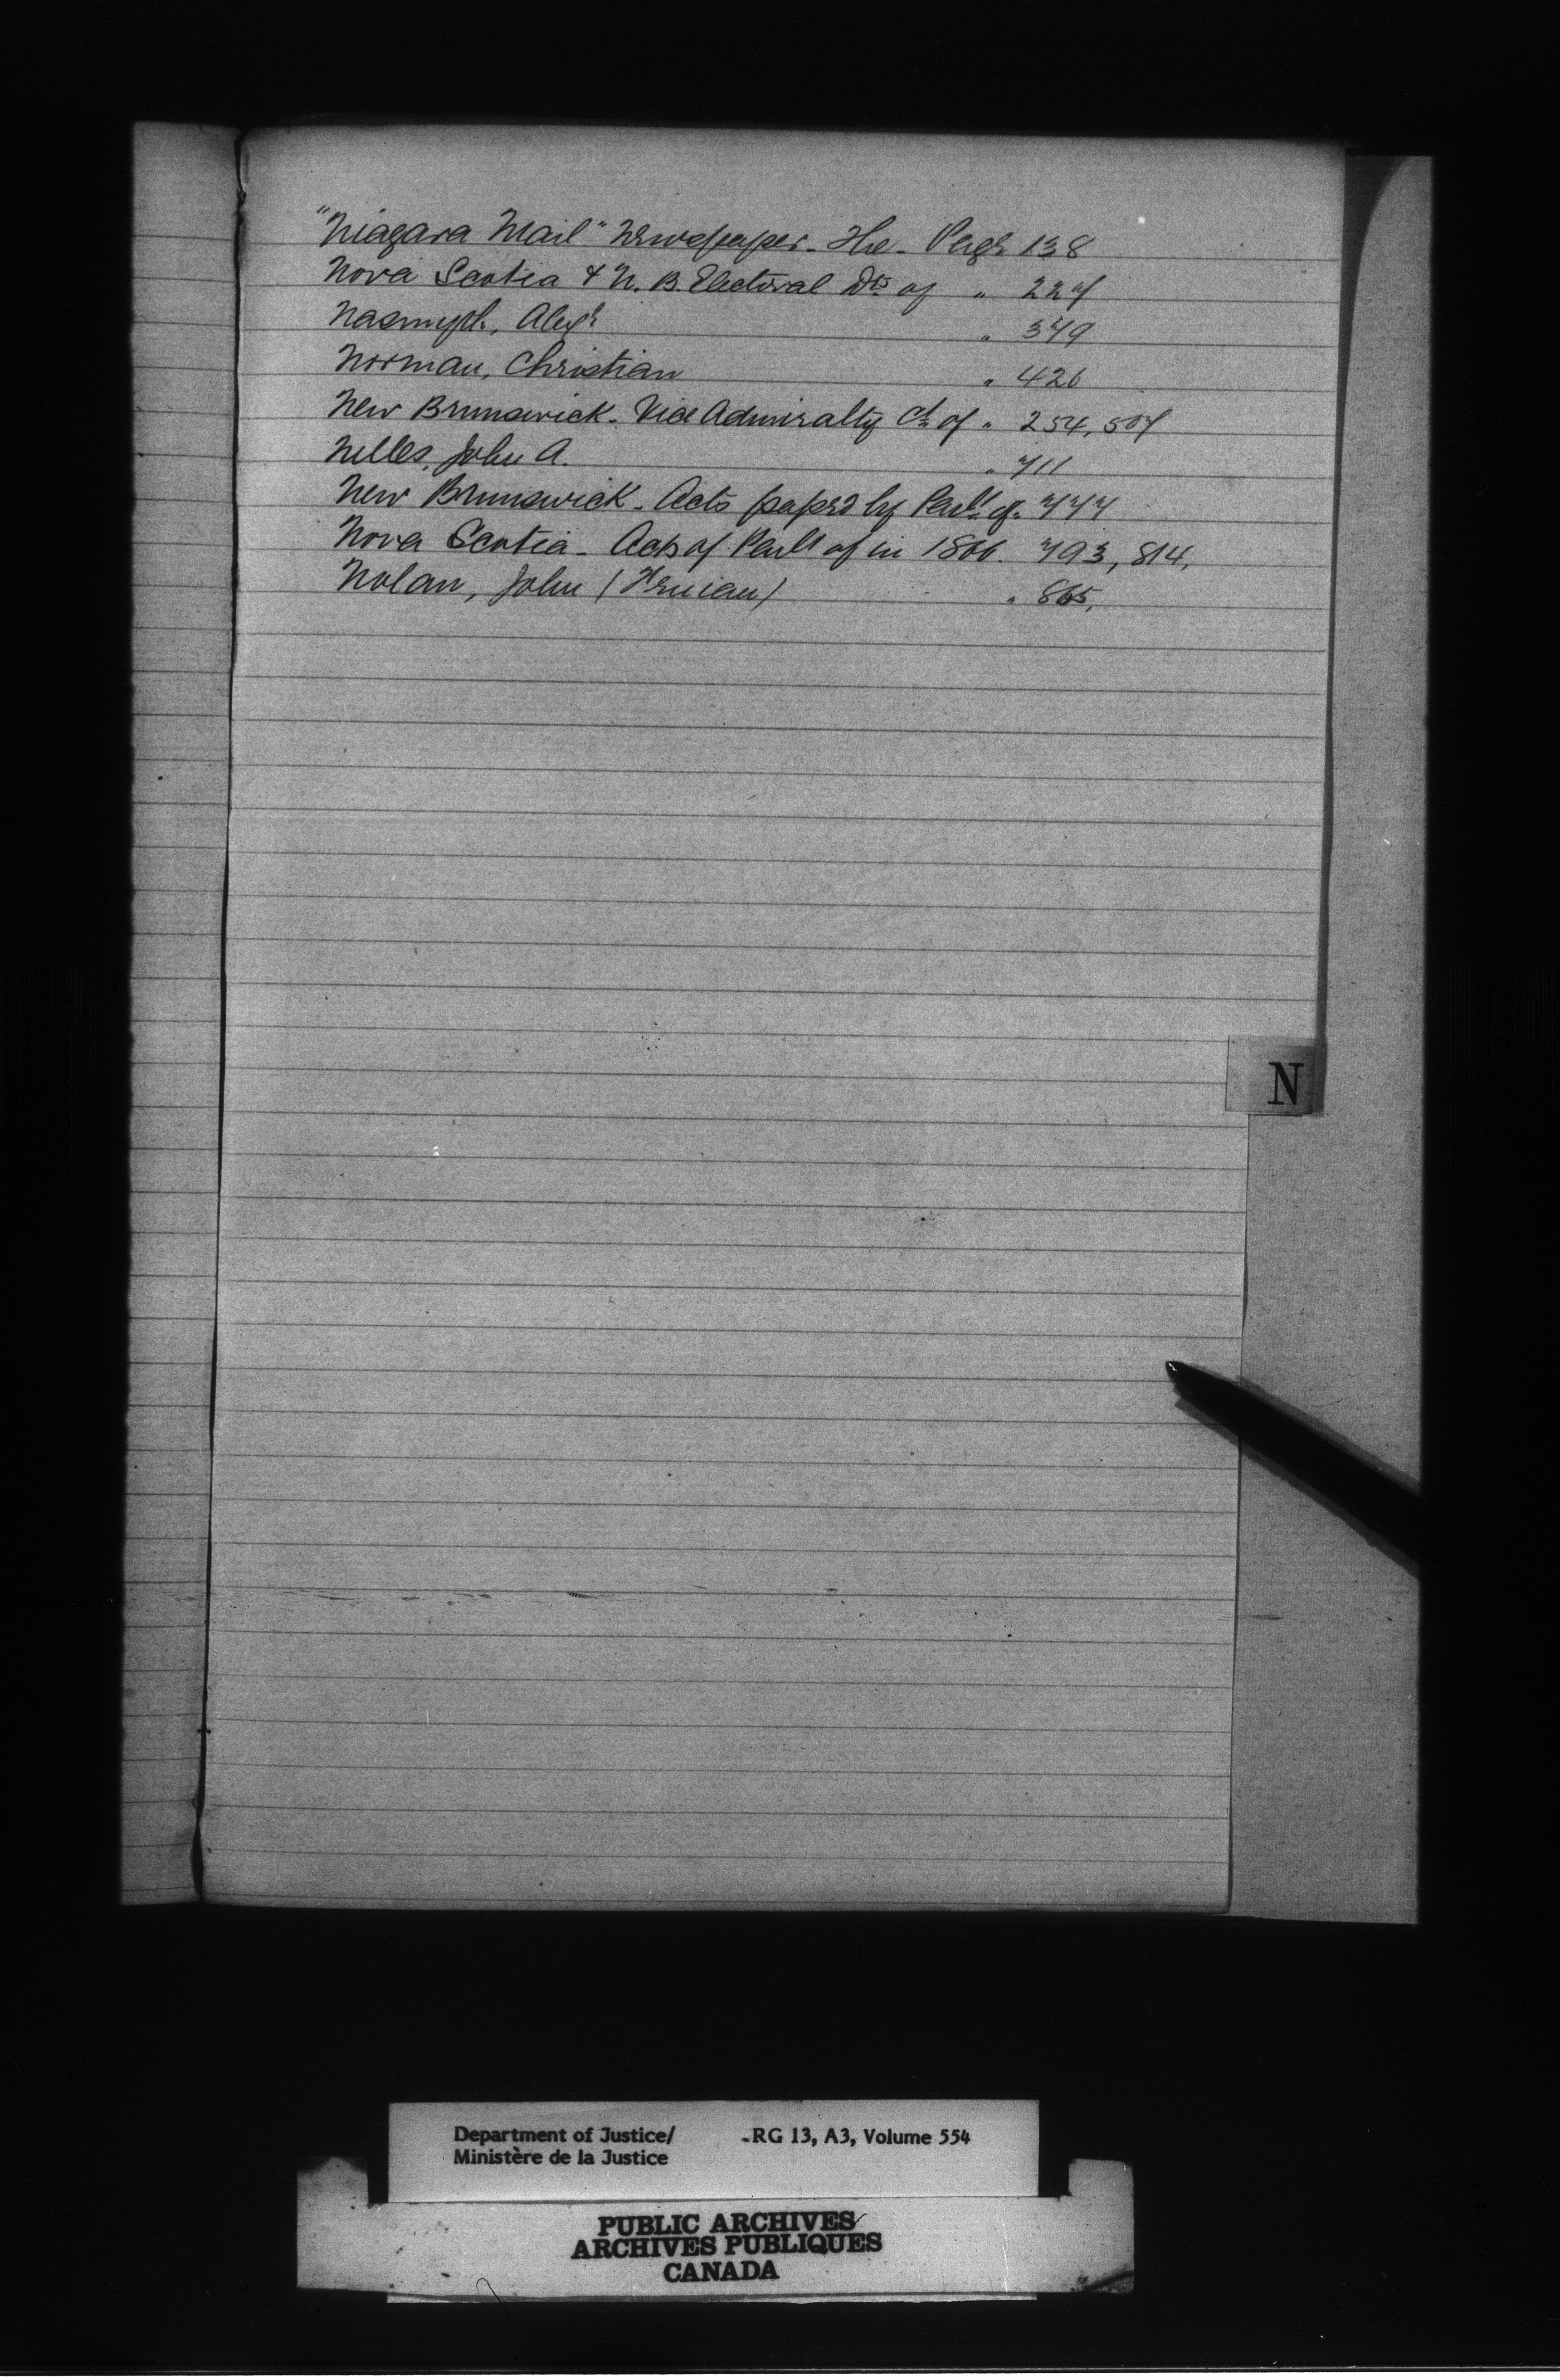 "Niagara Mail" Newspaper - The - Page 138
Nova Scotia & N. B. Electoral Dts of " 227
Nasmyth, Alexr " 349
Norman, Christian " 426
New Brunswick - Vice Admiralty Ct of " 254, 507
Nelles, John A. " 711
New Brunswick - Acts passed by Parlt of " 777
Nova Scotia - Acts of Parlt of in 1866. 793, 814,
Nolan, John (Fenian) " 865,
N
Department of Justice/ RG 13, A3, Volume 554
Ministère de la Justice
PUBLIC ARCHIVES
ARCHIVES PUBLIQUES
CANADA